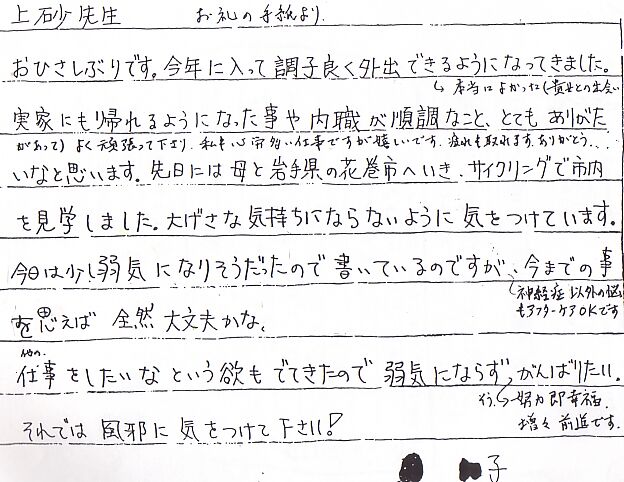 上砂先生 お礼の手紙より.
おひさしぶりです。今年に入って調子良く外出できるようになってきました。
本当によかったし貴女との出会い
実家にもり帰れるようになった事や内職が順調なこと、とてもありがた
があって) よく頑張って下さり、私も心労多い仕事ですが嬉しいです。疲れも取れます。ありがとう...
いなと思います。先日には母と岩手県の花巻市へいき、サイクリングで市内
を見学しました。大げさな気持ちにならないように気をつけています。
今日は少し弱気になりそうだったので書いているのですが、今までの事
神経症以外の悩
もアフターケアOKです
を思えば全然大丈夫かな。
他の.
仕事をしたいなという欲もでてきたので弱気にならず、がんばりたい。
努力即幸福.
増々前進です.
それでは風邪に気をつけて下さい!
子